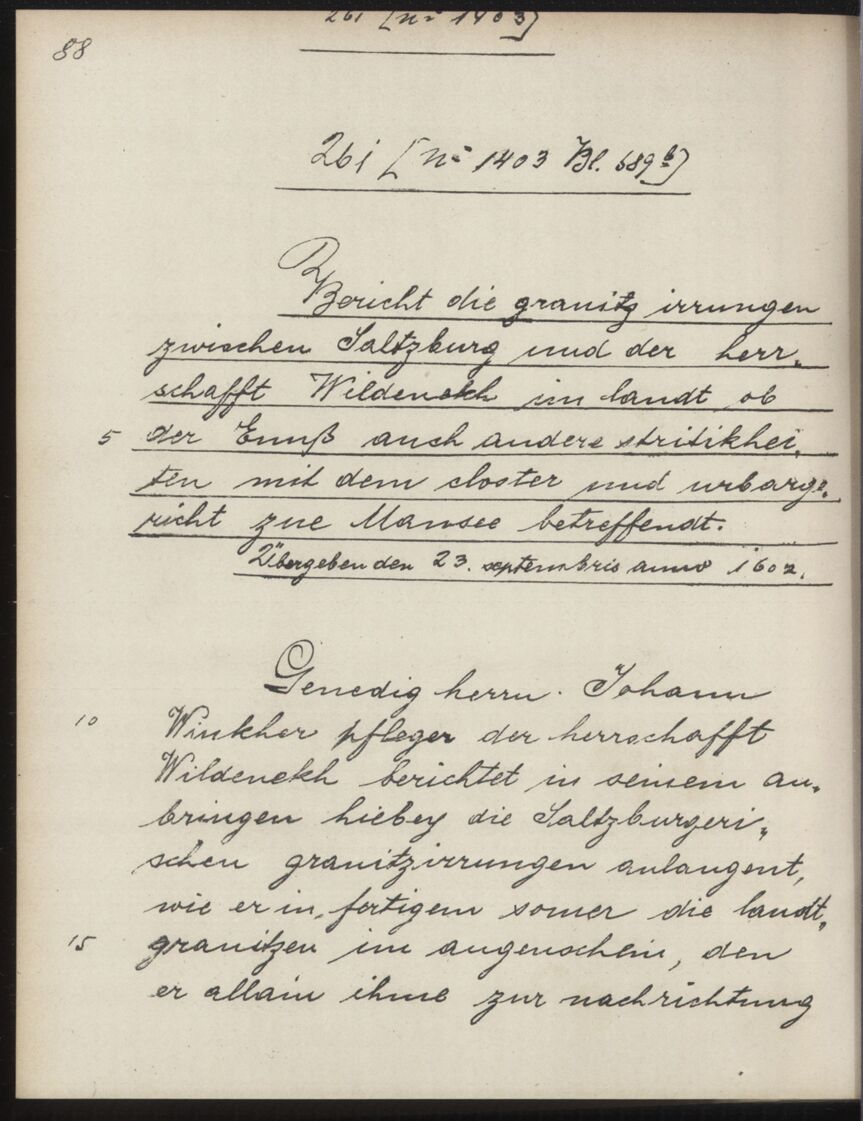 261 [nº 1403]
88
261 [nº 1403 Bl. 689b]
Bericht die granitz irrungen
zwischen Saltzburg und der herr„
schafft Wildenekh im landt ob
5 der Ennß auch andere stritikhei„
ten mit dem closter und urbarge„
richt zue Mansee betreffendt.
Übergeben den 23. septembris anno 1602.
Genedig herrn. Johann
10 Winkher pfleger der herrschafft
Wildenekh berichtet in seinem an„
bringen hiebey die Saltzburgeri„
schen granitzirrungen anlangent,
wie er in fertigem somer die landt„
15 granitzen im augenschein, den
er allain ihme zur nachrichtung